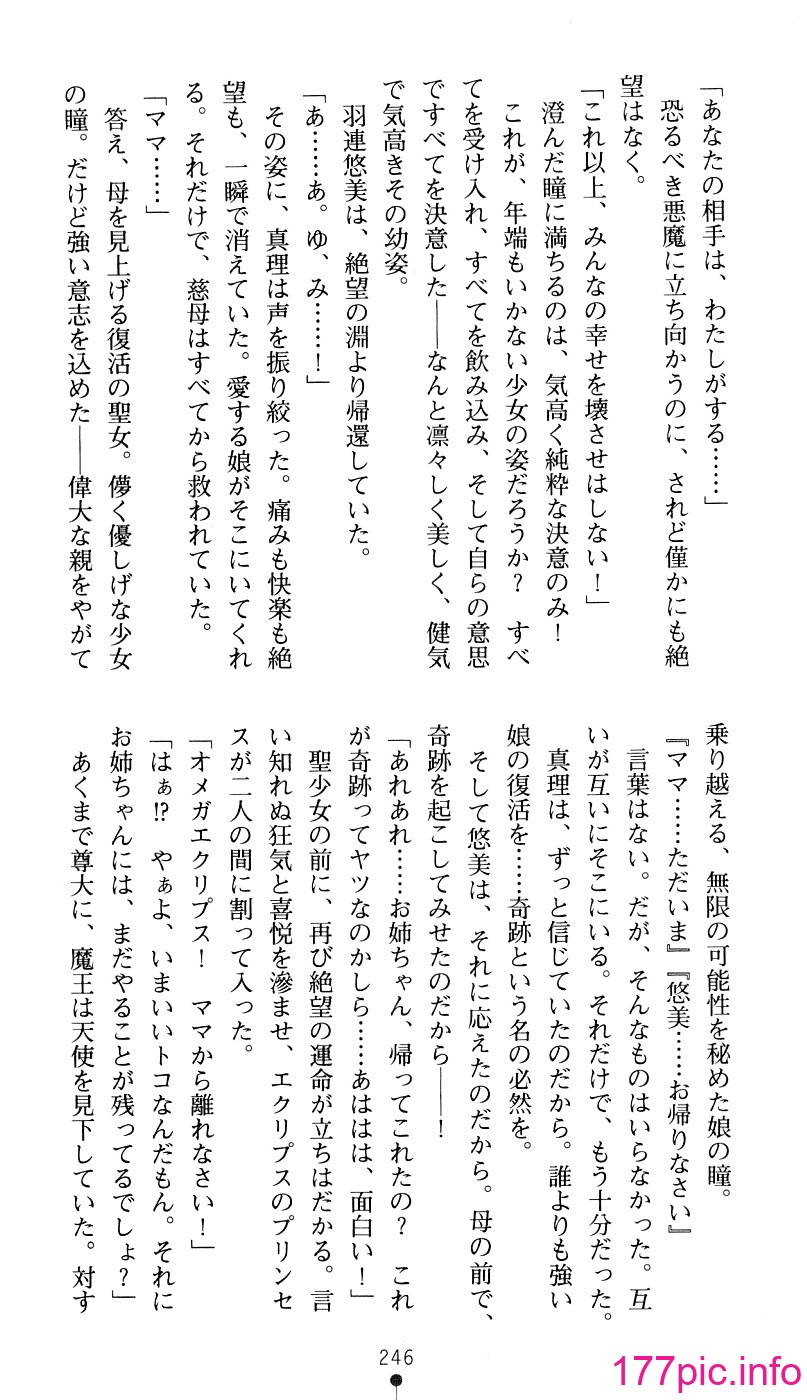 「あなたの相手は、わたしがする……」
　恐るべき悪魔に立ち向かうのに、されど僅かにも絶
望はなく。
「これ以上、みんなの幸せを壊させはしない！」
　澄んだ瞳に満ちるのは、気高く純粋な決意のみ！
　これが、年端もいかない少女の姿だろうか？　すべ
てを受け入れ、すべてを飲み込み、そして自らの意思
ですべてを決意した――なんと凛々しく美しく、健気
で気高きその幼姿。
　羽連悠美は、絶望の淵より帰還していた。
「あ……あ。ゆ、み……！」
　その姿に、真理は声を振り絞った。痛みも快楽も絶
望も、一瞬で消えていた。愛する娘がそこにいてくれ
る。それだけで、慈母はすべてから救われていた。
「ママ……」
　答え、母を見上げる復活の聖女。儚く優しげな少女
の瞳。だけど強い意志を込めた――偉大な親をやがて
乗り越える、無限の可能性を秘めた娘の瞳。
『ママ……ただいま』『悠美……お帰りなさい』
　言葉はない。だが、そんなものはいらなかった。互
いが互いにそこにいる。それだけで、もう十分だった。
　真理は、ずっと信じていたのだから。誰よりも強い
娘の復活を……奇跡という名の必然を。
　そして悠美は、それに応えたのだから。母の前で、
奇跡を起こしてみせたのだから――！
「あれあれ……お姉ちゃん、帰ってこれたの？　これ
が奇跡ってヤツなのかしら……あははは、面白い！」
　聖少女の前に、再び絶望の運命が立ちはだかる。言
い知れぬ狂気と喜悦を滲ませ、エクリプスのプリンセ
スが二人の間に割って入った。
「オメガエクリプス！　ママから離れなさい！」
「はぁ!?　やぁよ、いまいいトコなんだもん。それに
お姉ちゃんには、まだやることが残ってるでしょ？」
　あくまで尊大に、魔王は天使を見下していた。対す
246
177pic.info